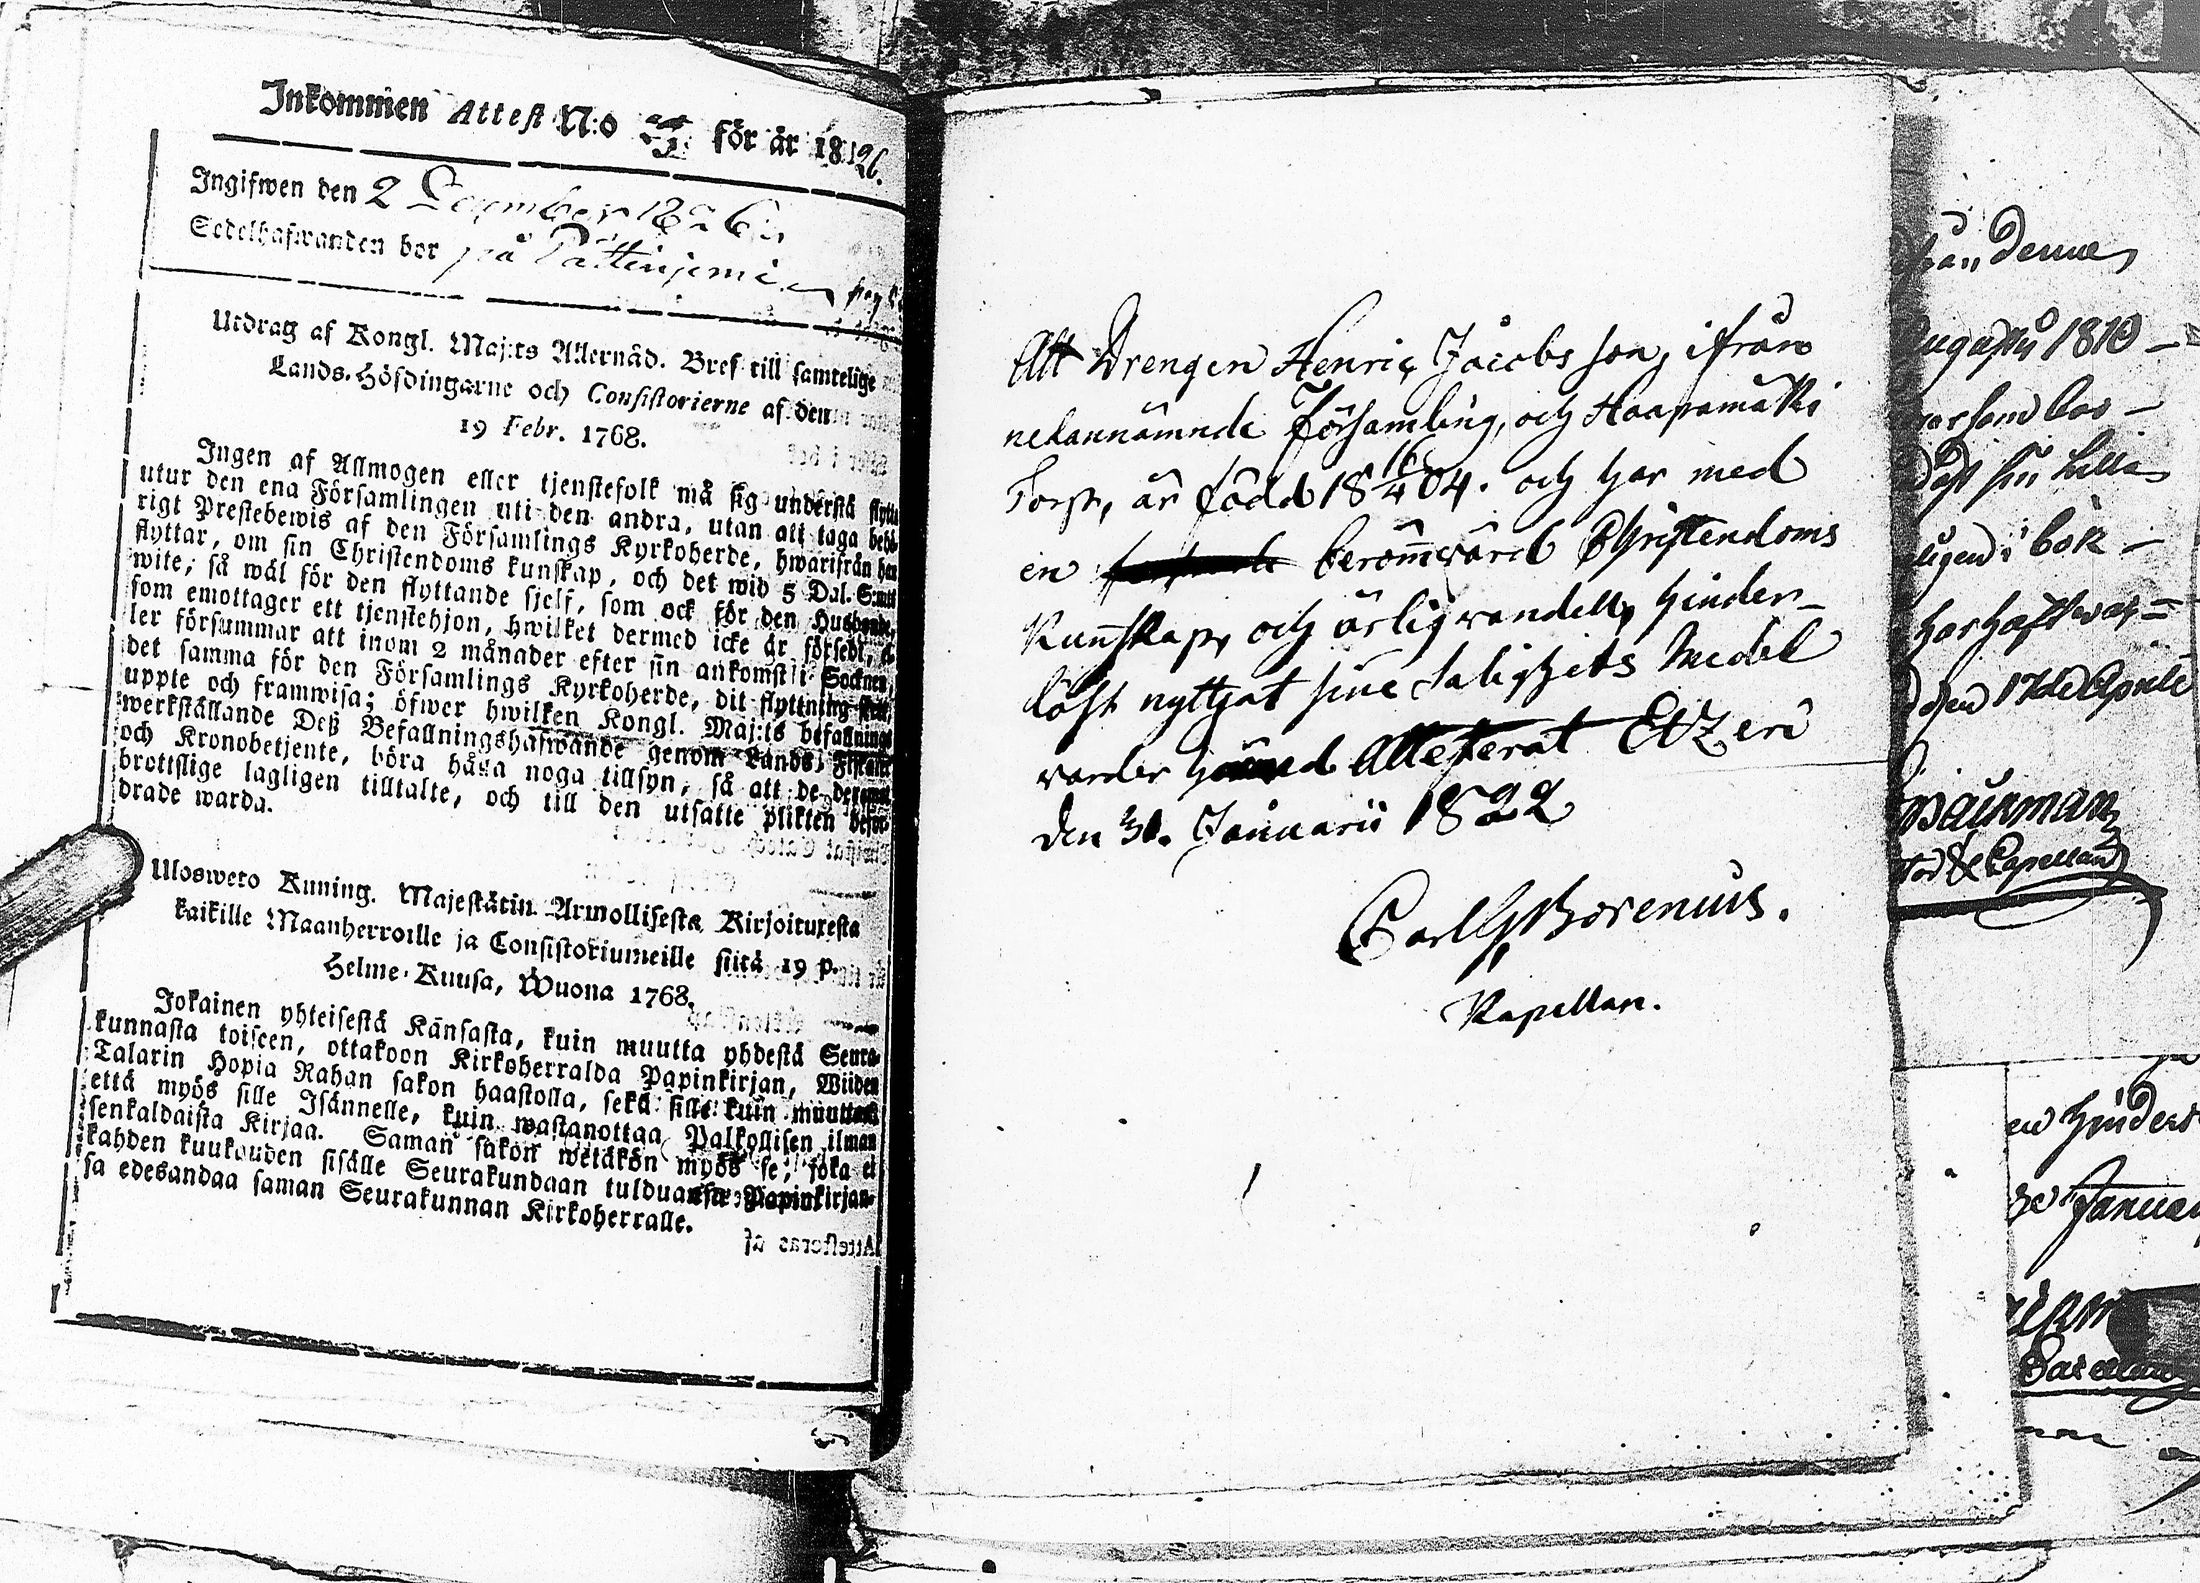 Inkommen Attest N:o för år 1826.
Ingifwen den 2 December 1826
Sedelhafwanden bor på Pättinjemi
Utdrag af Kongl. Maj:ts Allernåd. Bref till samtelige
Lands-Höfdingarne och Consistorierne af den
19 Febr. 1768.
Ingen af Allmogen eller tjenstefolk må sig understå flytta
utur den ena Församlingen uti den andra, utan att taga behö-
rigt Prestebewis af den Församlings Kyrkoherde, hwarifrån han
flyttar, om sin Christendoms kunskap, och det wid 5 Dal. S:mt
wite, så wäl för den flyttande sjelf, som ock för den Husbonde,
som emottager ett tjenstehjon, hwilket dermed icke är försedt, el-
ler försummar att inom 2 månader efter sin ankomst i Socknen,
det samma för den Församlings Kyrkoherde, dit flyttning sker,
uppte och framwisa; öfwer hwilken Kongl. Maj:ts befallnings
werkställande Deß Befallningshafwande genom Lands-Fiskaler
och Kronobetjente, böra hålla noga tillsyn, så att de deremot
brottslige lagligen tilltalte, och till den utsatte plikten befor-
drade warda.
Uloswero Kuning. Majestätin Armollisesta Kirjoituxesta
kaikille Maanherroille ja Consistoriumeille siitä 19 p.
Helme-Kuusa, Wuona 1768.
Jokainen yhteisestä Kansasta, kuin muutta yhdestä Seura-
kunnasta toiseen, ottakoon Kirkoherralda Papinkirjan, Wiiden
Talarin Hopia Rahan sakon haastolla, sekä sille kuin muuttaa
että myös sille Isännelle, kuin wastanottaa Palkollisen ilman
senkaldaista Kirjaa. Saman sakon wetäkön myös se, joka ei
kahden kuukauden sisälle Seurakundaan tulduansa Papinkirjan-
sa edesandaa saman Seurakunnan Kirkoherralle.
Attesteras af
Att Drengen Henric Jacobsson, ifrån
nedannämnde Församling, och Haapamäki
Torp, är född 18 16/4 04. och har med
en berömwärd Christendoms
Kunskap, och ärlig wandell, hinder-
löst nyttjat sine Salighets Medel
warder härmed Attesterat Etzeri
den 31. Januarii 1822
Carl G Borenius.
Kapellan.
denne
Augusti 1810
sin lilla
i bok
har haft
den 17de Aprill
& Capellan
hinders
Januari